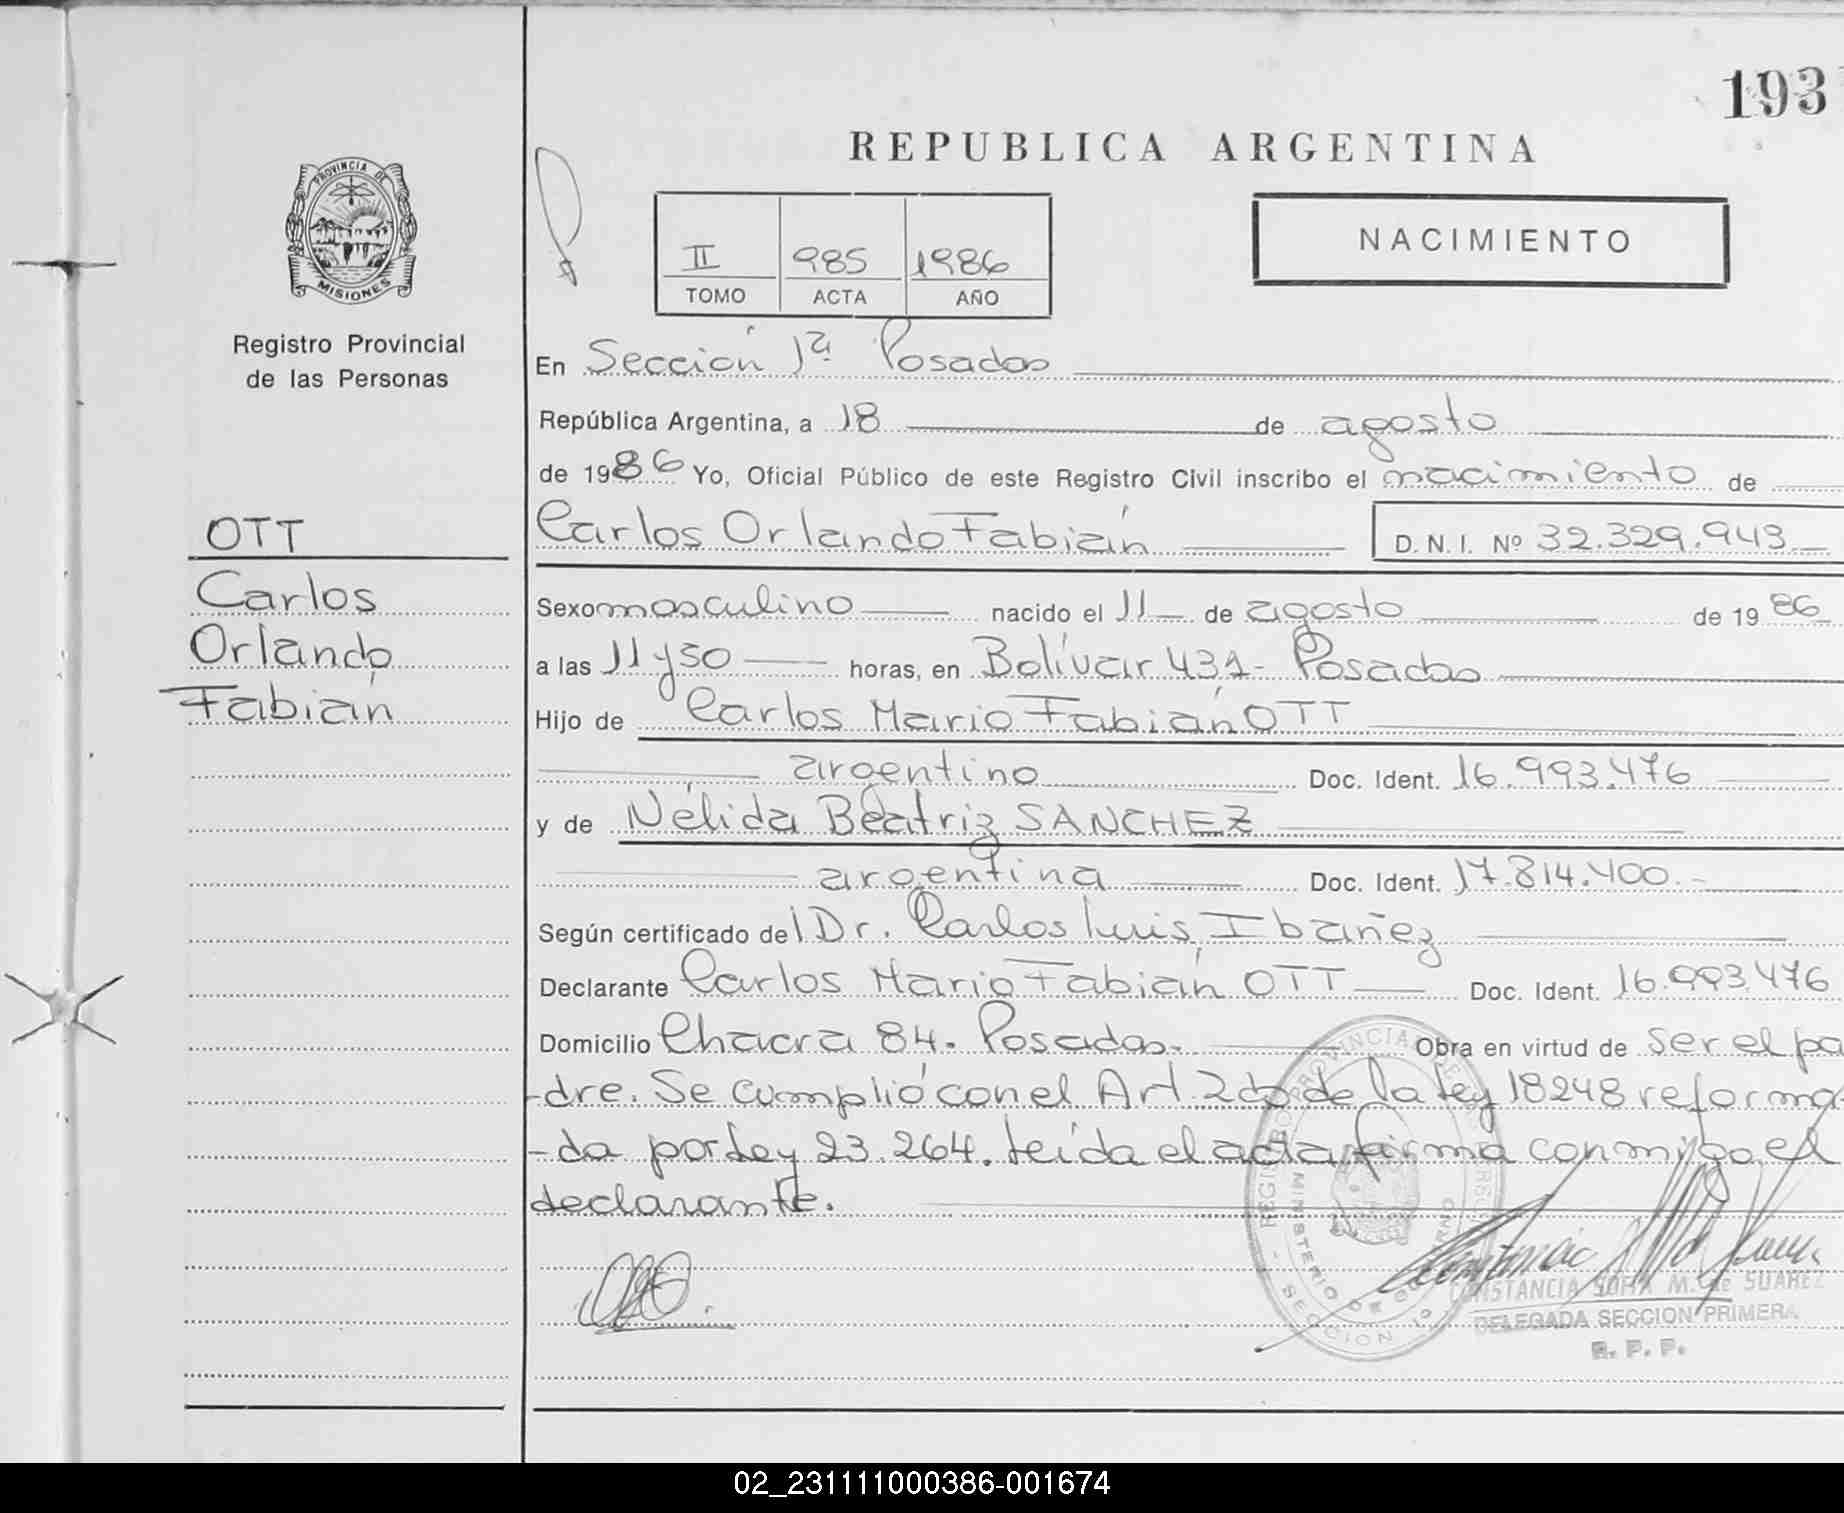 193
REPUBLICA ARGENTINA
PROVINCIA DE
MISIONES
II 985 1986
TOMO ACTA AÑO
NACIMIENTO
Registro Provincial
de las Personas
OTT
Carlos
Orlando
Fabián
En Sección 1ª Posadas
República Argentina, a 18 de agosto
de 1986 Yo, Oficial Público de este Registro Civil inscribo el nacimiento de
Carlos Orlando Fabián D. N. I. Nº 32.329.943
Sexo masculino nacido el 11 de agosto de 1986
a las 11 y 50 horas, en Bolívar 431- Posadas
Hijo de Carlos Mario Fabián OTT
argentino Doc. Ident. 16.993.476
y de Nélida Beatriz SANCHEZ
argentina Doc. Ident. 17.814.400.-
Según certificado del Dr. Carlos Luis Ibañez
Declarante Carlos Mario Fabián OTT Doc. Ident. 16.993.476
Domicilio Chacra 84. Posadas. Obra en virtud de ser el pa
-dre. Se cumplió con el Art. 2do de la Ley 18248 reforma-
-da por Ley 23.264. Leída el acta firma conmigo el
declarante.
CONSTANCIA SOFIA M. de SUAREZ
DELEGADA SECCION PRIMERA
R. P. P.
02_231111000386-001674